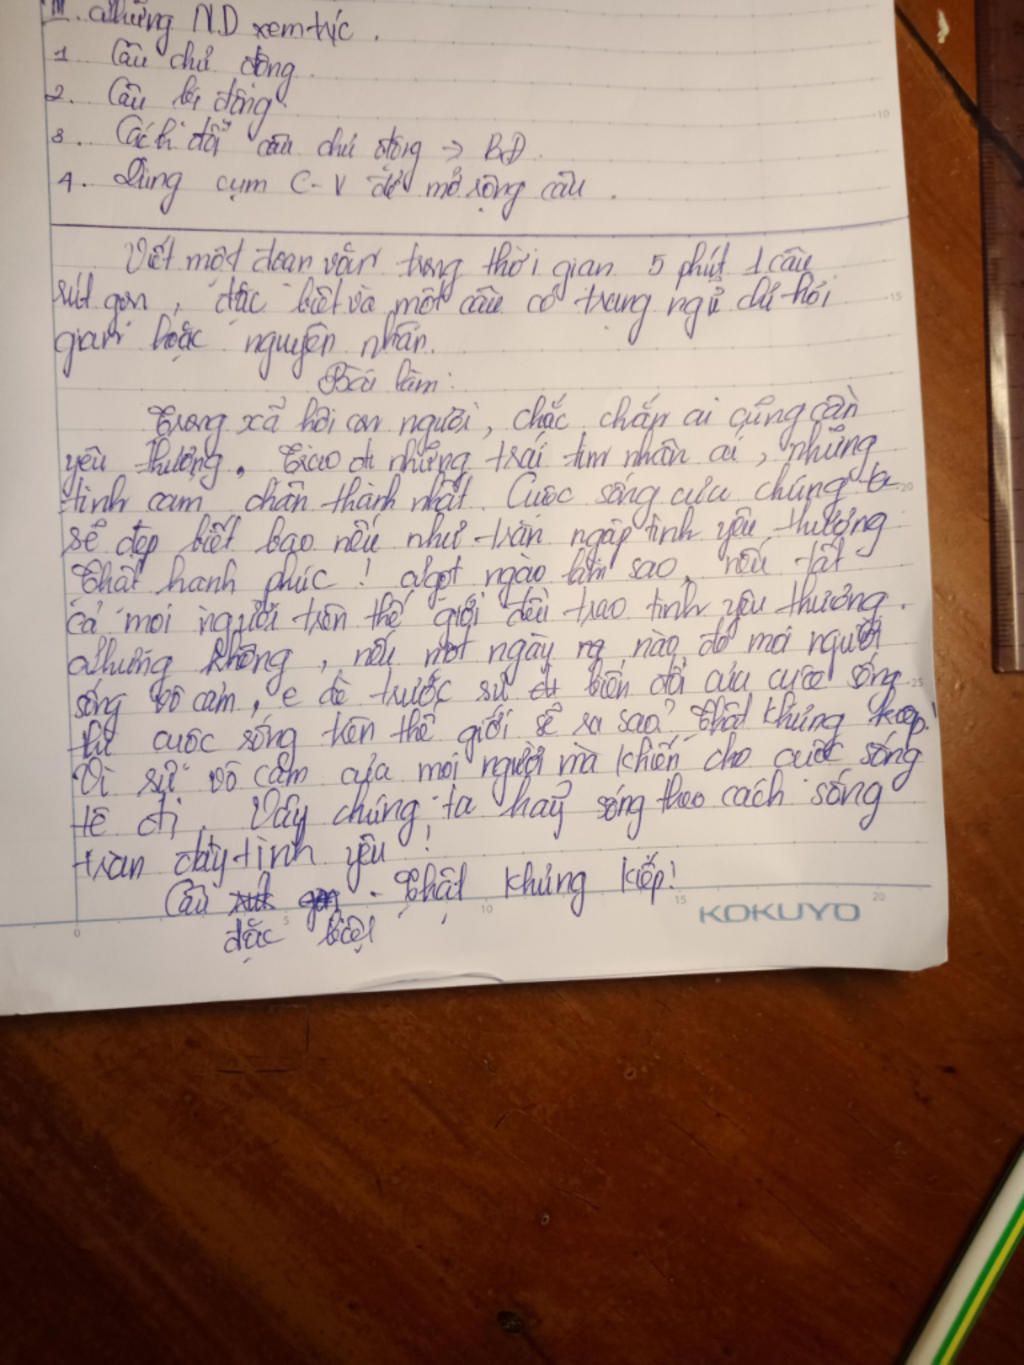 III. Những N.D xem tiếp.
1. Câu chủ động.
2. Câu bị động.
3. Cách đổi câu chủ động → BĐ.
4. Dùng cụm C-V để mở rộng câu.
Viết một đoạn văn trong thời gian 5 phút 1 câu
rút gọn, đặc biệt và một câu có trạng ngữ chỉ thời
gian hoặc nguyên nhân.
Bài làm:
Trong xã hội con người, chắc chắn ai cũng cần
yêu thương. Trao đi những trái tim nhân ái, những
tình cảm chân thành nhất. Cuộc sống của chúng ta
sẽ đẹp biết bao nếu như tràn ngập tình yêu thương
Thật hạnh phúc! Ngọt ngào làm sao, nếu tất
cả mọi người trên thế giới đều trao tình yêu thương.
Nhưng không, nếu một ngày nào đó mọi người
sống vô cảm, e dè trước sự biến đổi của cuộc sống
thì cuộc sống trên thế giới sẽ ra sao? Thật khủng kiếp!
Vì sự vô cảm của mọi người mà khiến cho cuộc sống
tệ đi. Vậy chúng ta hãy sống theo cách sống
tràn đầy tình yêu!
Câu đặc biệt: Thật khủng kiếp!
KOKUYO
0 5 10 15 20
10
15
20
25